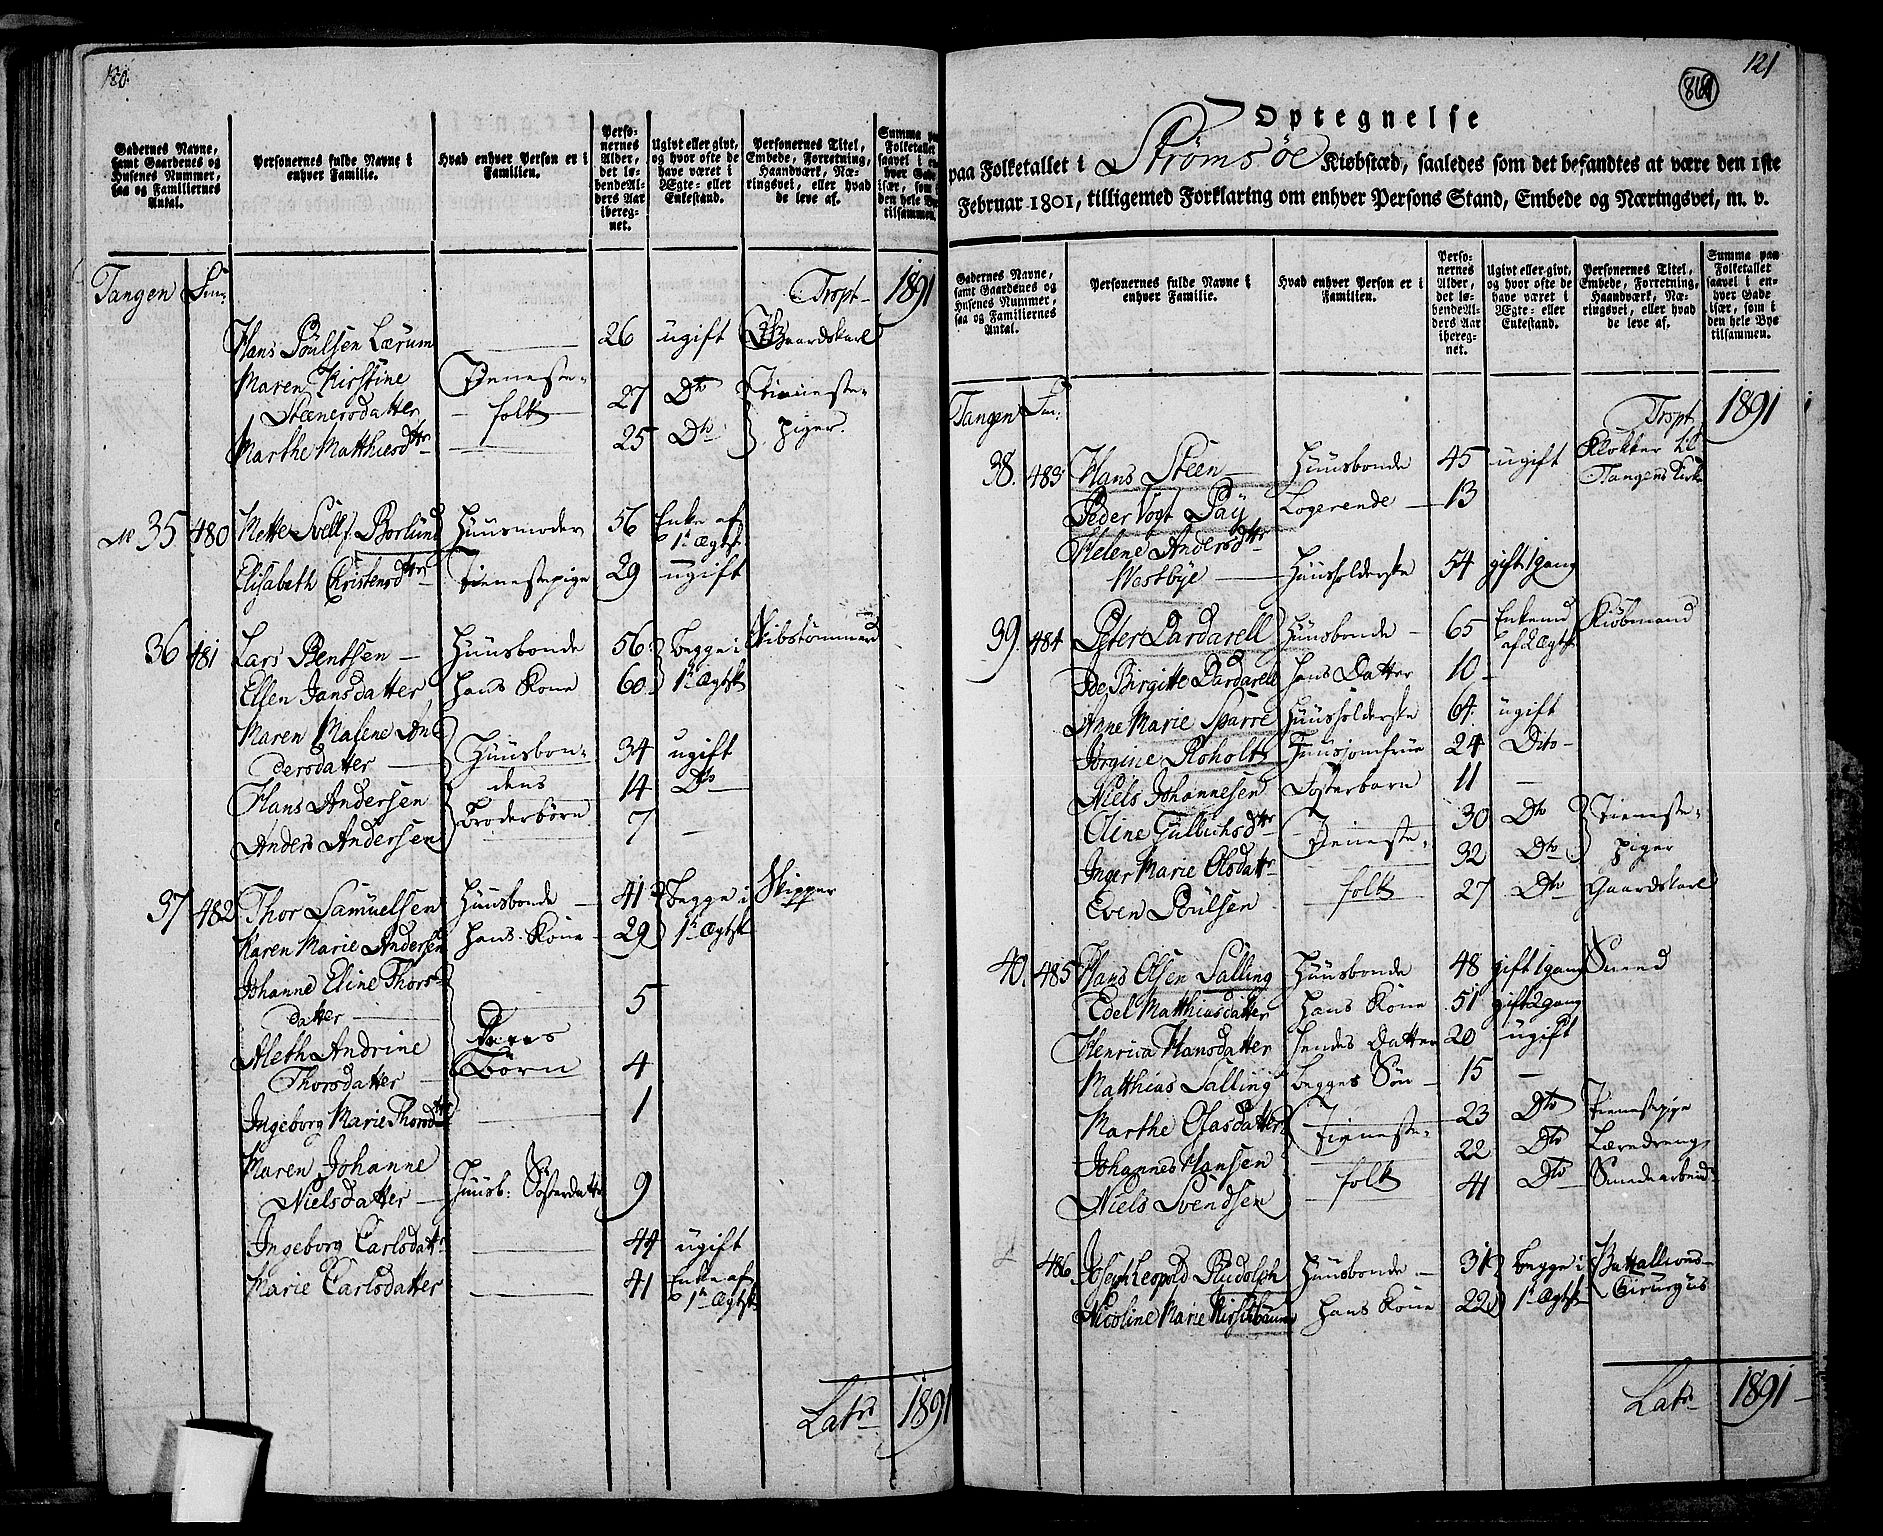 120.
Gadernes Navne, samt Gaardenes og Husenes Nummer, saa og Familiernes Antal.
Personernes fulde Navne i enhver Familie.
Hvad enhver Person er i Familien.
Personernes Alder, det løbende Alders Aar iberegnet.
Ugivt eller givt, og hvor ofte de have været i Ægte- eller Enkestand.
Personernes Titel, Embede, Forretning, Haandværk, Næringsvei, eller hvad de leve af.
Summa paa Folketallet saavel i enhver Gade især, som i den hele Bye tilsammen.
Tangen Trspt 1891
Hans Poulsen Lærum 26 ugift Gaardskarl
Maren Kirstine Tieneste-
Steenersdatter folk 27 Dto Tieneste-
Marthe Matthiesdtr 25 Dto piger.
No 35 480 Mette Sell f. Borlund Huusmoder 56 Enke af 1te Ægtsk
Elisabeth Christensdtr Tienestepige 29 ugift
36 481 Lars Bentsen Huusbonde 56 begge i Skibstømmermand
Ellen Jansdatter hans Kone 60 1te Ægtsk
Maren Malene An
dersdatter Huusbon- 34 ugift
Hans Andersen dens 14 Dto
Anders Andersen Broderbørn 7 —
37 482 Thor Samuelsen Huusbonde 41 begge i Skipper
Karen Marie Andersen hans Kone 29 1te Ægtsk
Johanne Eline Thors-
datter 5
Aleth Andrine Deres
Thorsdatter Børn 4
Ingeborg Marie Thorsdtr 1
Maren Johanne
Nielsdatter Huusb: Søsterdatter 9
Ingeborg Carlsdatr 44 ugift
Marie Carlsdatter 41 Enke af 1te Ægtsk
Latrs 1891
121
Optegnelse
paa Folketallet i Strømsøe Kiøbstæd, saaledes som det befandtes at være den 1ste
Februar 1801, tilligemed Forklaring om enhver Persons Stand, Embede og Næringsvei, m. v.
Gadernes Navne, samt Gaardenes og Husenes Nummer, saa og Familiernes Antal.
Personernes fulde Navne i enhver Familie.
Hvad enhver Person er i Familien.
Personernes Alder, det løbende Alders Aar iberegnet.
Ugivt eller givt, og hvor ofte de have været i Ægte- eller Enkestand.
Personernes Titel, Embede, Forretning, Haandværk, Næringsvei, eller hvad de leve af.
Summa paa Folketallet saavel i enhver Gade især, som i den hele Bye tilsammen.
Tangen Trspt 1891
38. 483 Hans Steen Huusbonde 45 ugift Klokker til Tangens Kirke
Peder Vogt Pay Logerende 13
Helene Andersdtr
Westbye Huusholderske 54 gift 1 gang
39. 484 Peter Dardarell Huusbonde 65 Enkemd af 2 Ægtsk Kiøbmand
Ide Birgitte Dardarell hans Datter 10
Anne Marie Sparre Huusholderske 64 ugift
Jørgine Roholt Huusjomfrue 24 Dito
Niels Johannesen Fosterbarn 11 —
Eline Gulbichsdtr Tieneste- 30 Dto Tieneste-
Inger Marie Olsdatr 32 Dto piger
Even Poulsen folk 27 Dto Gaardskarl
40. 485 Hans Olsen Salling Huusbonde 48 gift 1 gang Smed
Edel Matthiasdatter hans Kone 51 gift 2 gang
Henrica Hansdatter hendes Datter 20 ugift
Matthias Salling begges Søn 15 —
Marthe Olasdatter Tieneste- 23 Dto Tienestepige
Johannes Hansen 22 Dto Læredreng
Niels Svendsen folk 41 Dto Smedearbeid
486 Joseph Leopold Rudolph Huusbonde 31 begge i Battallions-
Nicoline Marie Kirschbaum hans Kone 22 1te Ægtsk Cirurgus
Latrs 1891